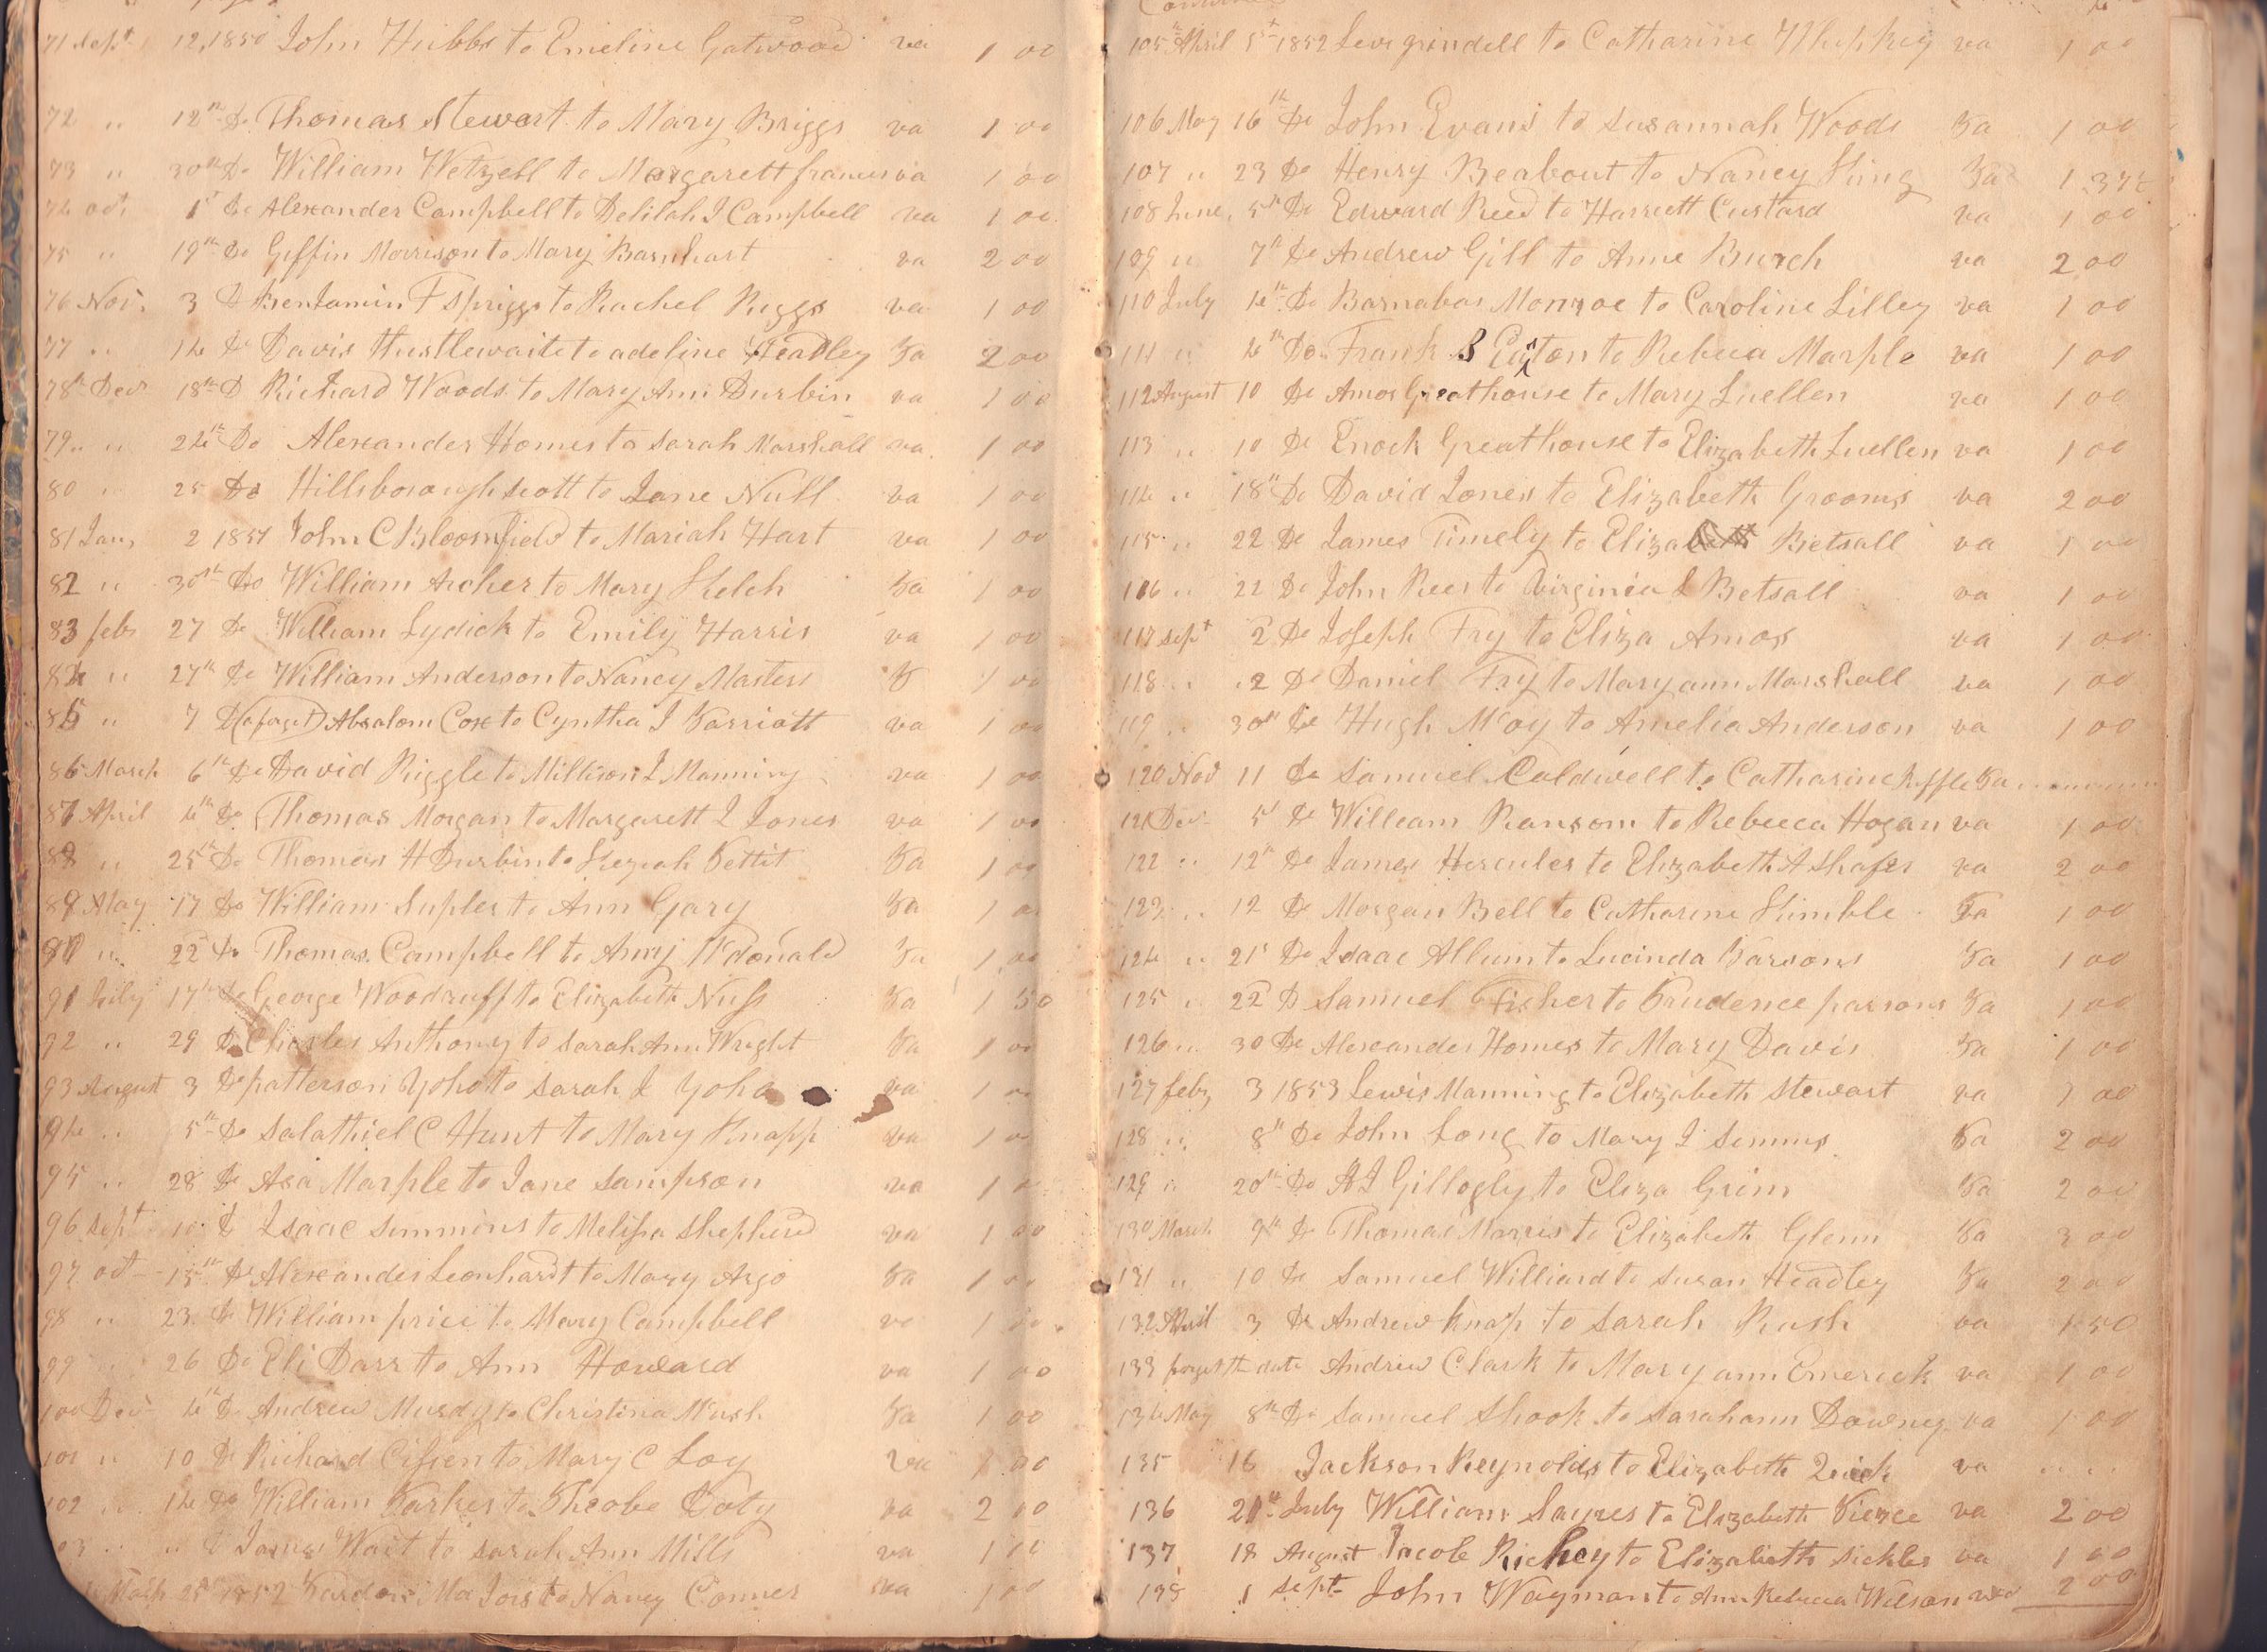 71 Sept 12, 1850 John Hubbs to Emeline Gatwood va 1 00
72 " 12th Do Thomas Stewart to Mary Briggs va 1 00
73 " 30th Do William Wetzell to Margarett frances va 1 00
74 oct 1st Do Alexander Campbell to Delilah J Campbell va 1 00
75 " 19th Do Giffin Morrison to Mary Barnhart va 2 00
76 Nov. 3 D Benjamin F Spriggs to Rachel Riggs va 1 00
77 " 14 Do Davis Hustlewaite to adeline Headley Pa 2 00
78 Decr 18th D Richard Woods to Mary Ann Durbin va 1 00
79 " " 24th Do Alexander Homes to Sarah Marshall va. 1 00
80 " 25 Do Hillsborough Scott to Jane Null va 1 00
81 Jan, 2 1851 John C Bloomfield to Mariah Hart va 1 00
82 " 30th Do William Archer to Mary Kelch Pa 1 00
83 feb 27 Do William Lydick to Emily Harris va 1 00
84 " 27th Do William Anderson to Nancy Masters P 1 00
85 " 7 D (forget) Absalom Cox to Cyntha J Parriott va 1 00
86 March 6th Do David Riggle to Millison J Manning va 1 00
87 April 4th Do Thomas Morgan to Margarett J Jones va 1 00
88 " 25th Do Thomas H Durbin to Keziah Pettit Pa 1 00
89 May 17 Do William Suples to Ann Gary Pa 1 00
90 " 22 Do Thomas Campbell to Amy Mcdonald Pa 1 00
91 July 17th Do George Woodruff to Elizabeth Nuss Pa 1 50
92 " 29 Do Charles Anthony to Sarah Ann Wright Pa 1 00
93 August 3 Do patterson Yoho to Sarah J Yoho va 1
94 " 5th Do Salathiel C Hunt to Mary Knapp va 1
95 " 28 Do Asa Marple to Jane Sampson va 1
96 Sept 10 D Isaac Simmins to Melissa Shepherd va 1 00
97 oct 15th Do Alexander Leonhardt to Mary Argo Pa 1 00
98 " 23 Do William price to Mary Campbell va 1 00
99 " 26 Do Eli Darr to Ann Howard va 1 00
100 Decr 4th D Andrew Murdy to Christina Mush Pa 1 00
101 " 10 Do Richard to Mary C Loy va 1 00
102 " 14 Do William Parkes to Pheobe Doty va 2 00
03 " " D James Wait to Sarah Ann Mills va 1
March 25th 1852 Major to Nancy Conner va 1 00
105th April 5th 1852 Levi grindell to Catharine Whipkey va 1 00
106 May 16th Do John Evans to Susannah Woods Pa 1 00
107 " 23 Do Henry Beabout to Nancy King Pa 1 37½
108 June, 5th Do Edward Reed to Harriett Custard va 1 00
109 " 7th Do Andrew Gill to Anne Burch va 2 00
110 July 4th Do Barnabas Monroe to Caroline Lilley va 1 00
111 " 4th Do Frank S to Rebeca Marple va 1 00
112 August 10 Do Amos Greathouse to Mary Luellen va 1 00
113 " 10 Do Enoch Greathouse to Elizabeth Luellen va 1 00
114 " 18th Do David Jones to Elizabeth Grooms va 2 00
115 " 22 Do James Timely to Eliza Betsall va 1 00
116 " 22 Do John Rees to Virginia J Betsall va 1 00
117 Sept 2 Do Joseph Fry to Eliza Amos va 1 00
118 " 2 Do Daniel Fry to Mary ann Marshall va 1 00
119 " 30th Do Hugh McCoy to Amelia Anderson va 1 00
120 Nov 11 Do Samuel Caldwell to Catharine Pa
121 Decr 5th Do William Ransom to Rebecca Hogan va 1 00
122 " 12th Do James Hercules to Elizabeth A Shafer va 2 00
123 " 12 Do Morgan Bell to Catharine Kimble Pa 1 00
124 " 21st Do Isaac Allum to Lucinda Parsons Pa 1 00
125 " 22 D Samuel Fisher to Prudence parsons Pa 1 00
126 " 30 Do Alexander Homes to Mary Davis Pa 1 00
127 feby 3 1853 Lewis Manning to Elizabeth Stewart va 1 00
128 " 8th Do John Long to Mary J Simms Pa 2 00
129 " 20th Do A J Gillogly to Eliza Grim Pa 2 00
130 March 9th Do Thomas Morris to Elizabeth Glenn Pa 3 00
131 " 10 Do Samuel Williard to Susan Headley Pa 2 00
132 April 3 Do Andrew Knap to Sarah Rush va 1 50
133 forget the date Andrew Clark to Mary ann Emerick va 1 00
134 May 8th Do Samuel Shook to Sarahann Downey va 1 00
135 16 Jackson Reynolds to Elizabeth va
136 21st July William Sayres to Elizabeth Pierce va 2 00
137 18 August Jacob Richey to Elizabeth Sickles va 1 00
138 1 Sept John Wayman to Ann Rebecca Wilson va 2 00